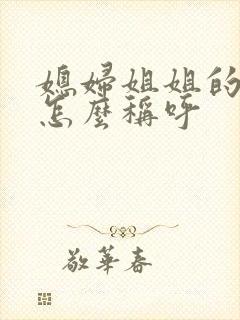 媳婦姐姐的
怎麼稱呼
敬華春